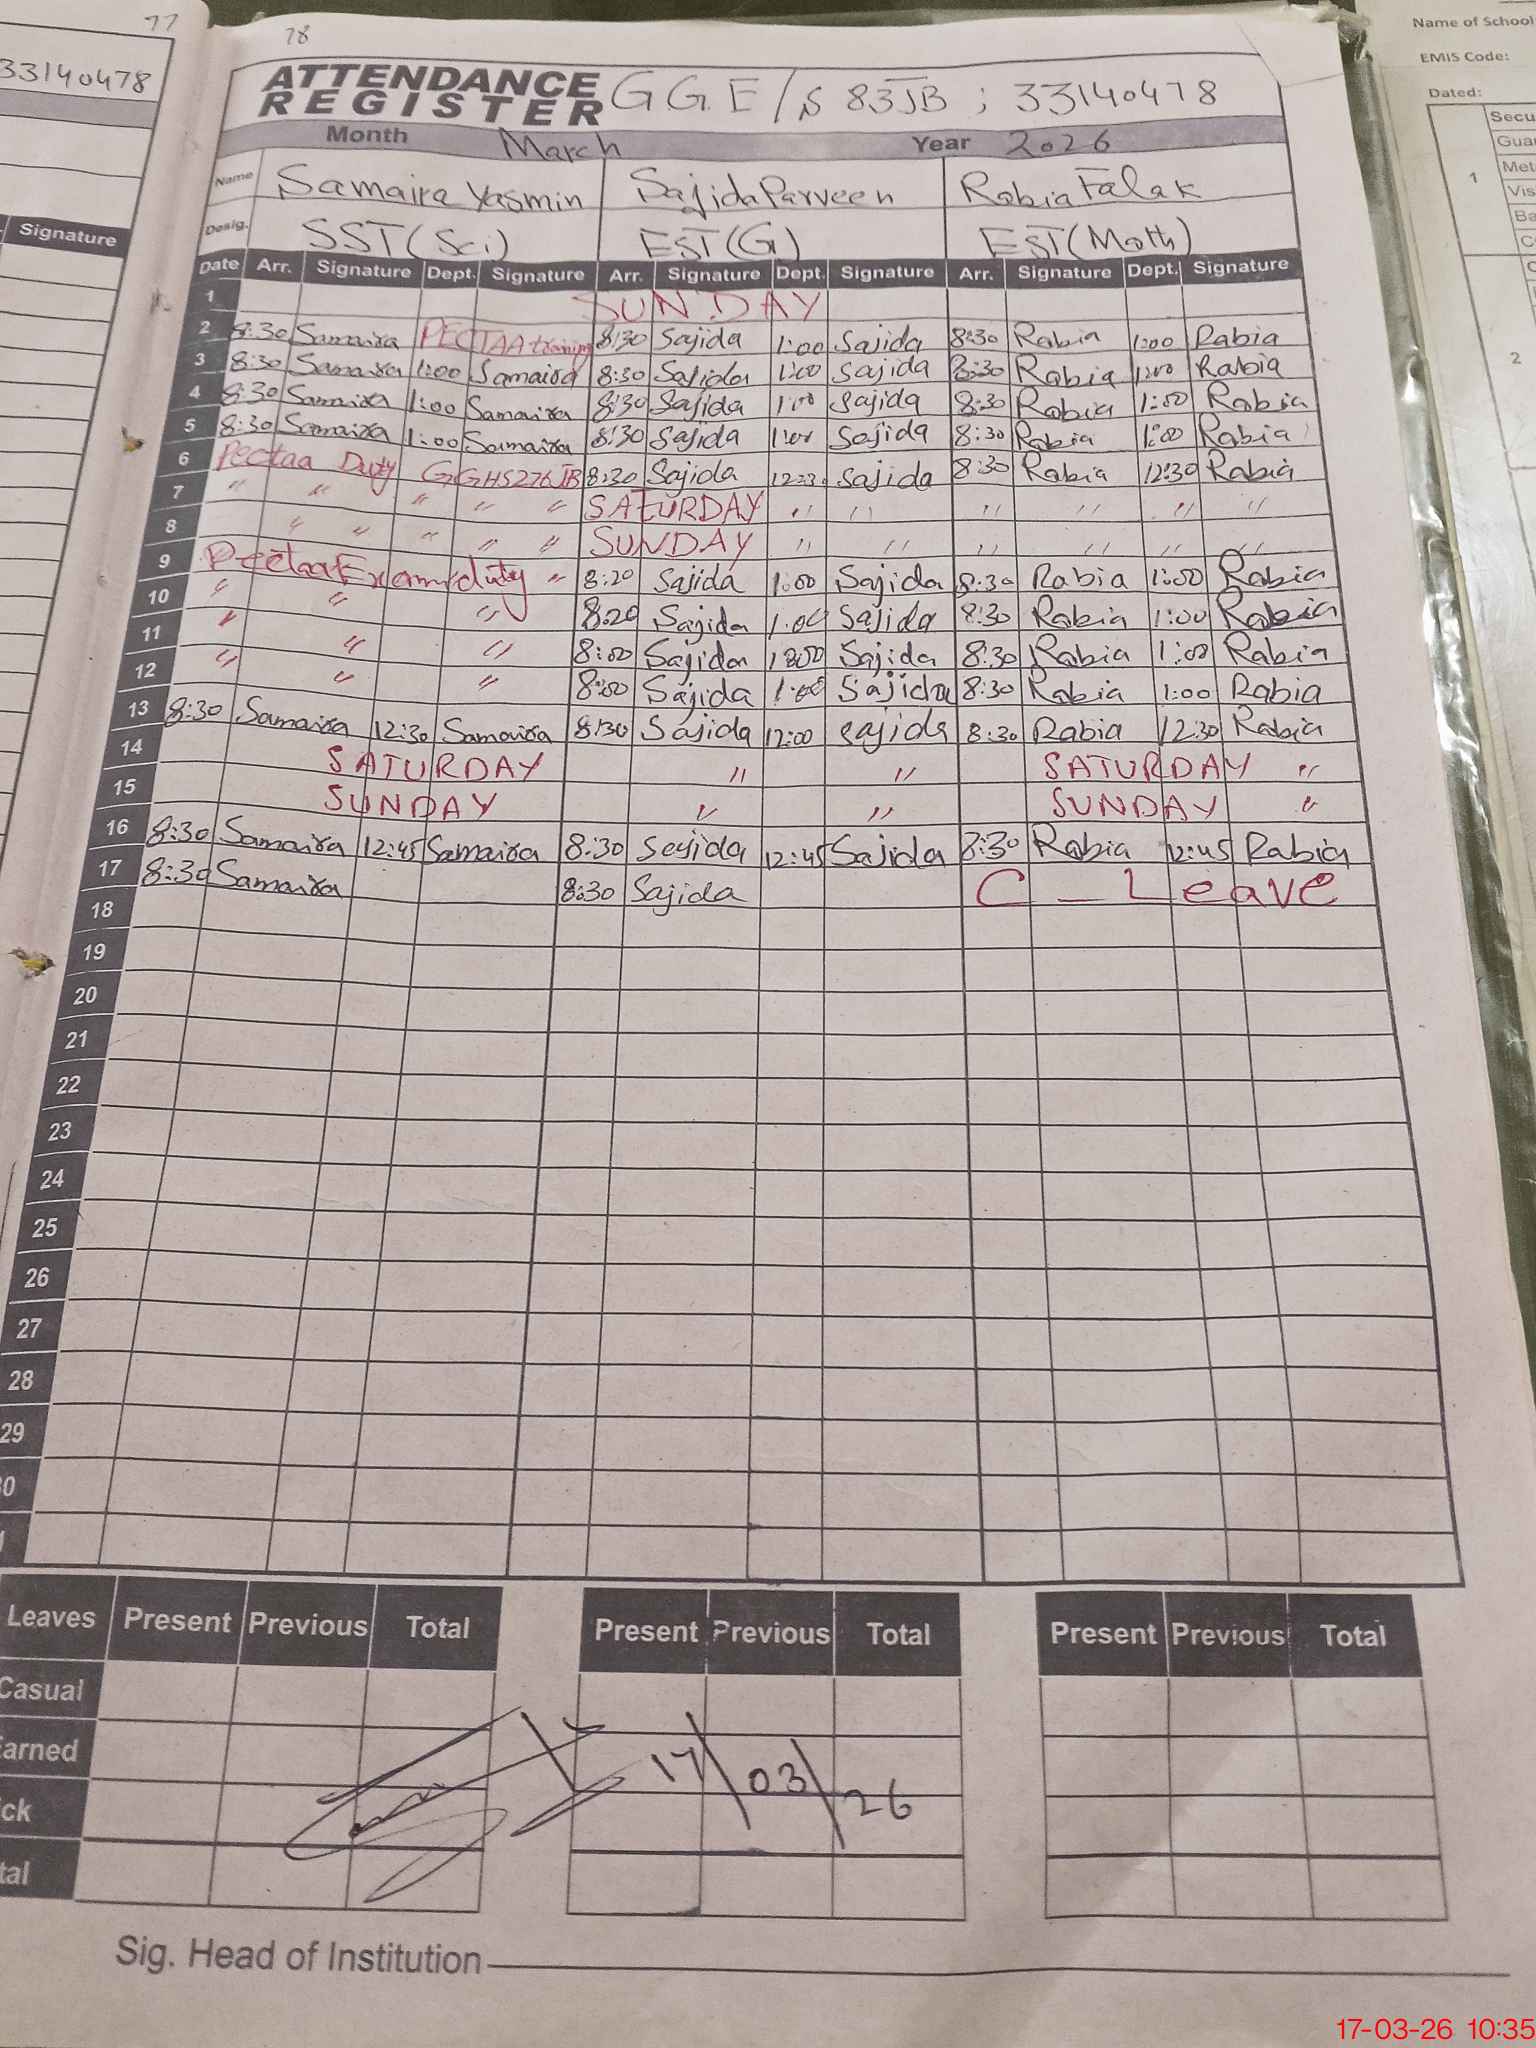 77
33140478
Signature
78
ATTENDANCE REGISTER GGE/S 83JB ; 33140478
Month March Year 2026
Name Samaira Yasmin Sajida Parveen Rabia Falak
Desig. SST(Sci) EST(G) EST(Math)
Date Arr. Signature Dept. Signature Arr. Signature Dept. Signature Arr. Signature Dept. Signature
1 SUNDAY
2 8:30 Samaira PECTAA training 8:30 Sajida 1:00 Sajida 8:30 Rabia 1:00 Rabia
3 8:30 Samaira 1:00 Samaira 8:30 Sajida 1:00 Sajida 8:30 Rabia 1:00 Rabia
4 8:30 Samaira 1:00 Samaira 8:30 Sajida 1:00 Sajida 8:30 Rabia 1:00 Rabia
5 8:30 Samaira 1:00 Samaira 8:30 Sajida 1:00 Sajida 8:30 Rabia 1:00 Rabia
6 Pectaa Duty GGHS276JB 8:30 Sajida 12:30 Sajida 8:30 Rabia 12:30 Rabia
7 " " " " " SATURDAY " " " " " "
8 " " " " " SUNDAY " " " " " "
9 Pectaa Exam duty " 8:20 Sajida 1:00 Sajida 8:30 Rabia 1:00 Rabia
10 " " " 8:20 Sajida 1:00 Sajida 8:30 Rabia 1:00 Rabia
11 " " " 8:00 Sajida 1:00 Sajida 8:30 Rabia 1:00 Rabia
12 " " " 8:00 Sajida 1:00 Sajida 8:30 Rabia 1:00 Rabia
13 8:30 Samaira 12:30 Samaira 8:30 Sajida 12:00 Sajida 8:30 Rabia 12:30 Rabia
14 SATURDAY " " SATURDAY "
15 SUNDAY " " SUNDAY "
16 8:30 Samaira 12:45 Samaira 8:30 Sajida 12:45 Sajida 8:30 Rabia 12:45 Rabia
17 8:30 Samaira 8:30 Sajida C_Leave
18
19
20
21
22
23
24
25
26
27
28
29
0
Leaves Present Previous Total Present Previous Total Present Previous Total
Casual
Earned
ck
tal
17/03/26
Sig. Head of Institution
Name of School
EMIS Code:
Dated:
1
Secu
Gua
Met
Vis
Ba
C
2
17-03-26 10:35